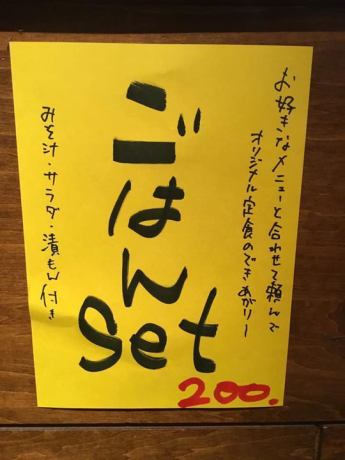 お好きなメニューと合わせて頼んで
オリジナル定食のできあがりー
ごはん
set
200.
みそ汁・サラダ・漬もの付き